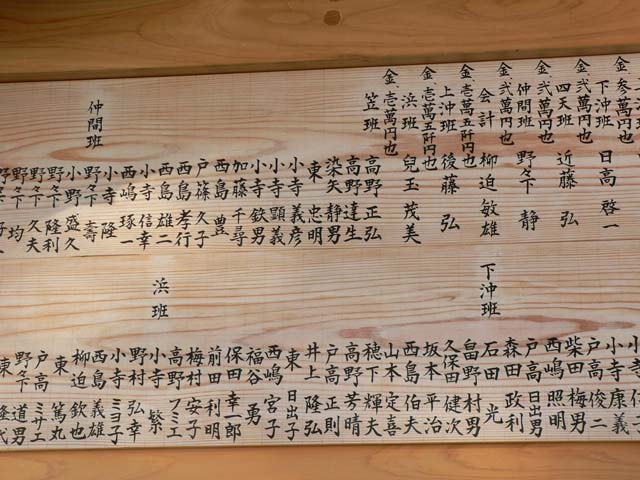 金 参萬円也
下沖班 日高 啓一
金 弐萬円也
四天班 近藤 弘
金 弐萬円也
仲間班 野々下 静
金 弐萬円也
会計 柳迫 敏雄
金 壱萬五阡円也
上沖班 後藤 弘
金 壱萬五阡円也
浜班 兒玉 茂美
金 壱萬円也
笠班
高野 正弘
高野 達生
染矢 静男
東 忠明
小寺 義彦
小寺 顕義
小寺 欽男
加藤 千尋
西島 豊
戸篠 久子
西島 孝行
西島 雄二
小寺 信幸
西嶋 琢一
小寺 隆
野々下 壽
小野 盛久
野々下 隆利
野々下 久夫
均
仲間班
下沖班
小寺
小寺 康
戸高 俊二
柴田 梅男
西嶋 照明
戸高 日出男
森田 政利
石田 光
畠野 村男
久保田 健次
坂本 平治
西島 伯夫
山本 定喜
穂下 輝夫
高野 芳晴
戸高 正則
井上 隆弘
東 日出子
西嶋 宮子
福谷 勇
保田 幸一郎
前田 利明
梅村 安子
高野 フミエ
浜班
小寺 繁
野村 弘幸
小寺 ミヨ子
西島 義雄
柳迫 欽也
東 篤丸
戸高 ミサエ
野々下 道男
東